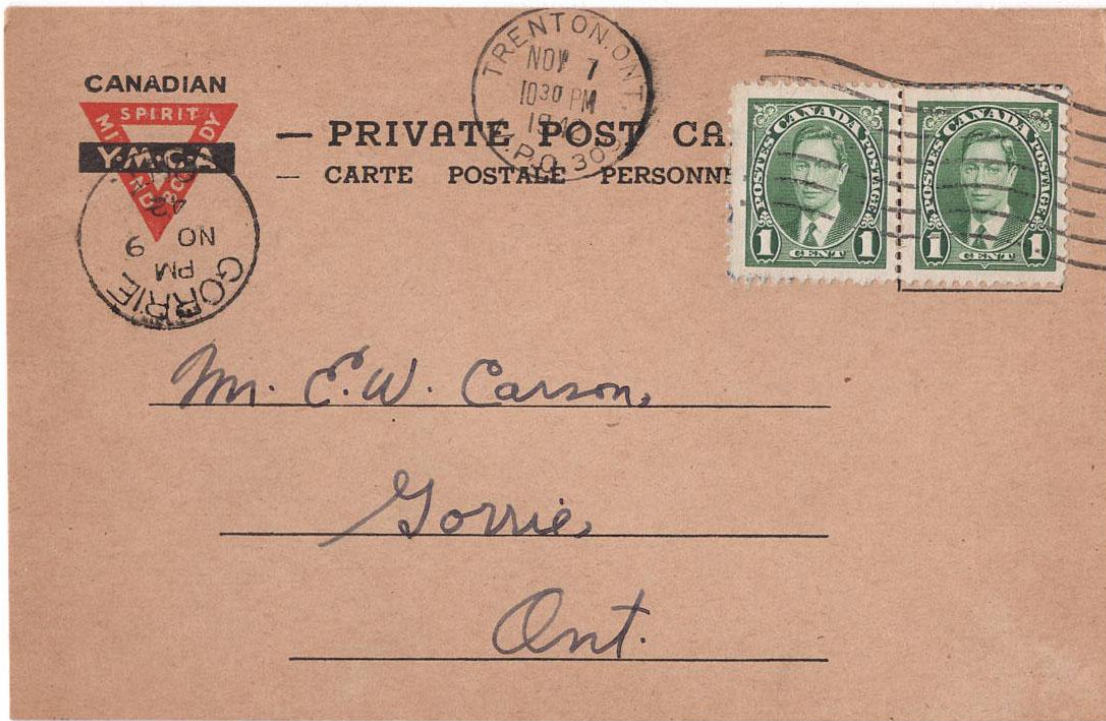 CANADIAN
SPIRIT
MIND
BODY
Y·M·C·A
TRENTON.ONT.
NOV 7
10 30 PM
M.P.O. 303
— PRIVATE POST CA
— CARTE POSTALE PERSONNE
POSTES CANADA POSTAGE
1 CENT 1
POSTES CANADA POSTAGE
1 CENT 1
GORRIE
PM
NO 9
42
Mr. E.W. Carson,
Gorrie,
Ont.